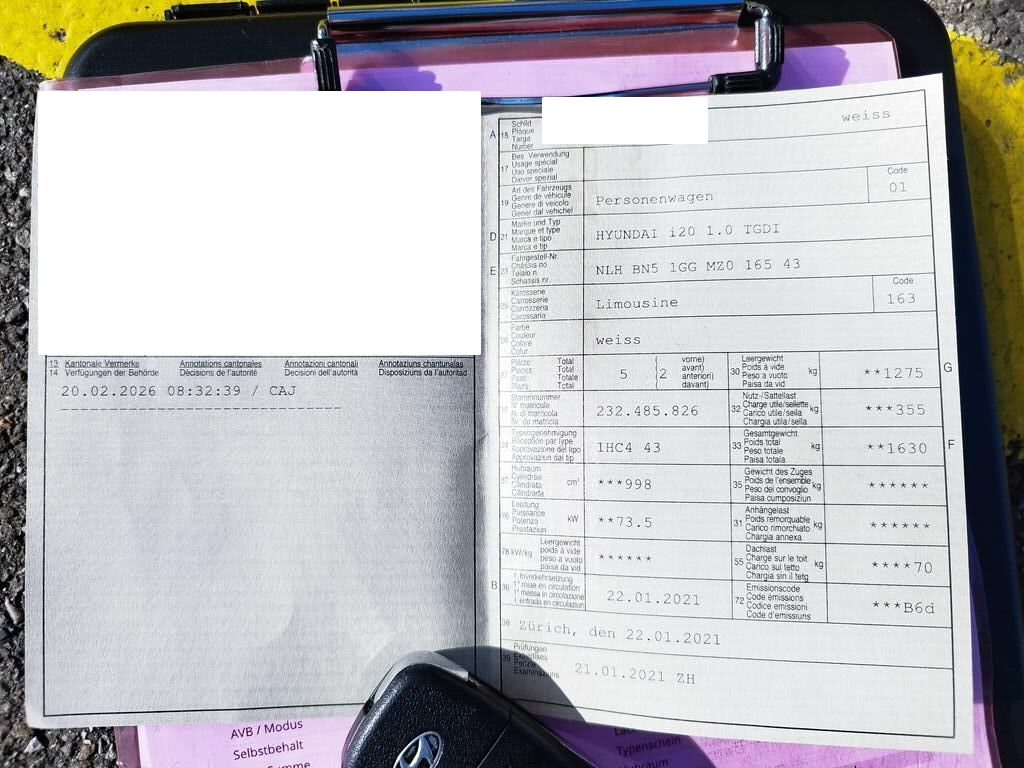 13 Kantonale Vermerke Annotations cantonales Annotazioni cantonali Annotaziuns chantunalas
14 Verfügungen der Behörde Décisions de l'autorité Decisioni dell'autorità Disposiziuns da l'autoritad
20.02.2026 08:32:39 / CAJ
A 15 Schild
Plaque
Targa
Numer
weiss
17 Bes. Verwendung
Usage spécial
Uso speciale
Diever spezial
19 Art des Fahrzeugs
Genre de véhicule
Genere di veicolo
Gener dal vehichel
Personenwagen
Code
01
D 21 Marke und Typ
Marque et type
Marca e tipo
Marca e tip
HYUNDAI i20 1.0 TGDI
E 23 Fahrgestell-Nr.
Châssis no
Telaio n.
Schassis nr.
NLH BN5 1GG MZ0 165 43
25 Karosserie
Carrosserie
Carrozzeria
Carossaria
Limousine
Code
163
26 Farbe
Couleur
Colore
Colur
weiss
27 Plätze: Total
Places: Total
Posti: Totale
Plazs: Total
5 (2 vorne)
avant)
anteriori)
davant)
30 Leergewicht
Poids à vide
Peso a vuoto
Paisa da vid
kg
**1275
G
18 Stammnummer
N° matricule
N. di matricola
Nr. da matricla
232.485.826
32 Nutz-/Sattellast
Charge utile/sellette
Carico utile/sella
Chargia utila/sella
kg
***355
24 Typengenehmigung
Réception par type
Approvazione del tipo
Approvaziun dal tip
1HC4 43
33 Gesamtgewicht
Poids total
Peso totale
Paisa totala
kg
**1630
F
37 Hubraum
Cylindrée
Cilindrata
Cilindrada
cm³
***998
35 Gewicht des Zuges
Poids de l'ensemble
Peso del convoglio
Paisa cumposiziun
kg
******
76 Leistung
Puissance
Potenza
Prestaziun
kW
**73.5
31 Anhängelast
Poids remorquable
Carico rimorchiato
Chargia annexa
kg
******
78 kW/kg Leergewicht
poids à vide
peso a vuoto
paisa da vid
******
55 Dachlast
Charge sur le toit
Carico sul tetto
Chargia sin il tetg
kg
****70
B 36 1. Inverkehrsetzung
1re mise en circulation
1a messa in circolazione
1. entrada en circulaziun
22.01.2021
72 Emissionscode
Code émissions
Codice emissioni
Code d'emissiuns
***B6d
38 Zürich, den 22.01.2021
39 Prüfungen
Expertises
Perizie
Examinaziuns
21.01.2021 ZH
AVB / Modus
Selbstbehalt
Typenschein